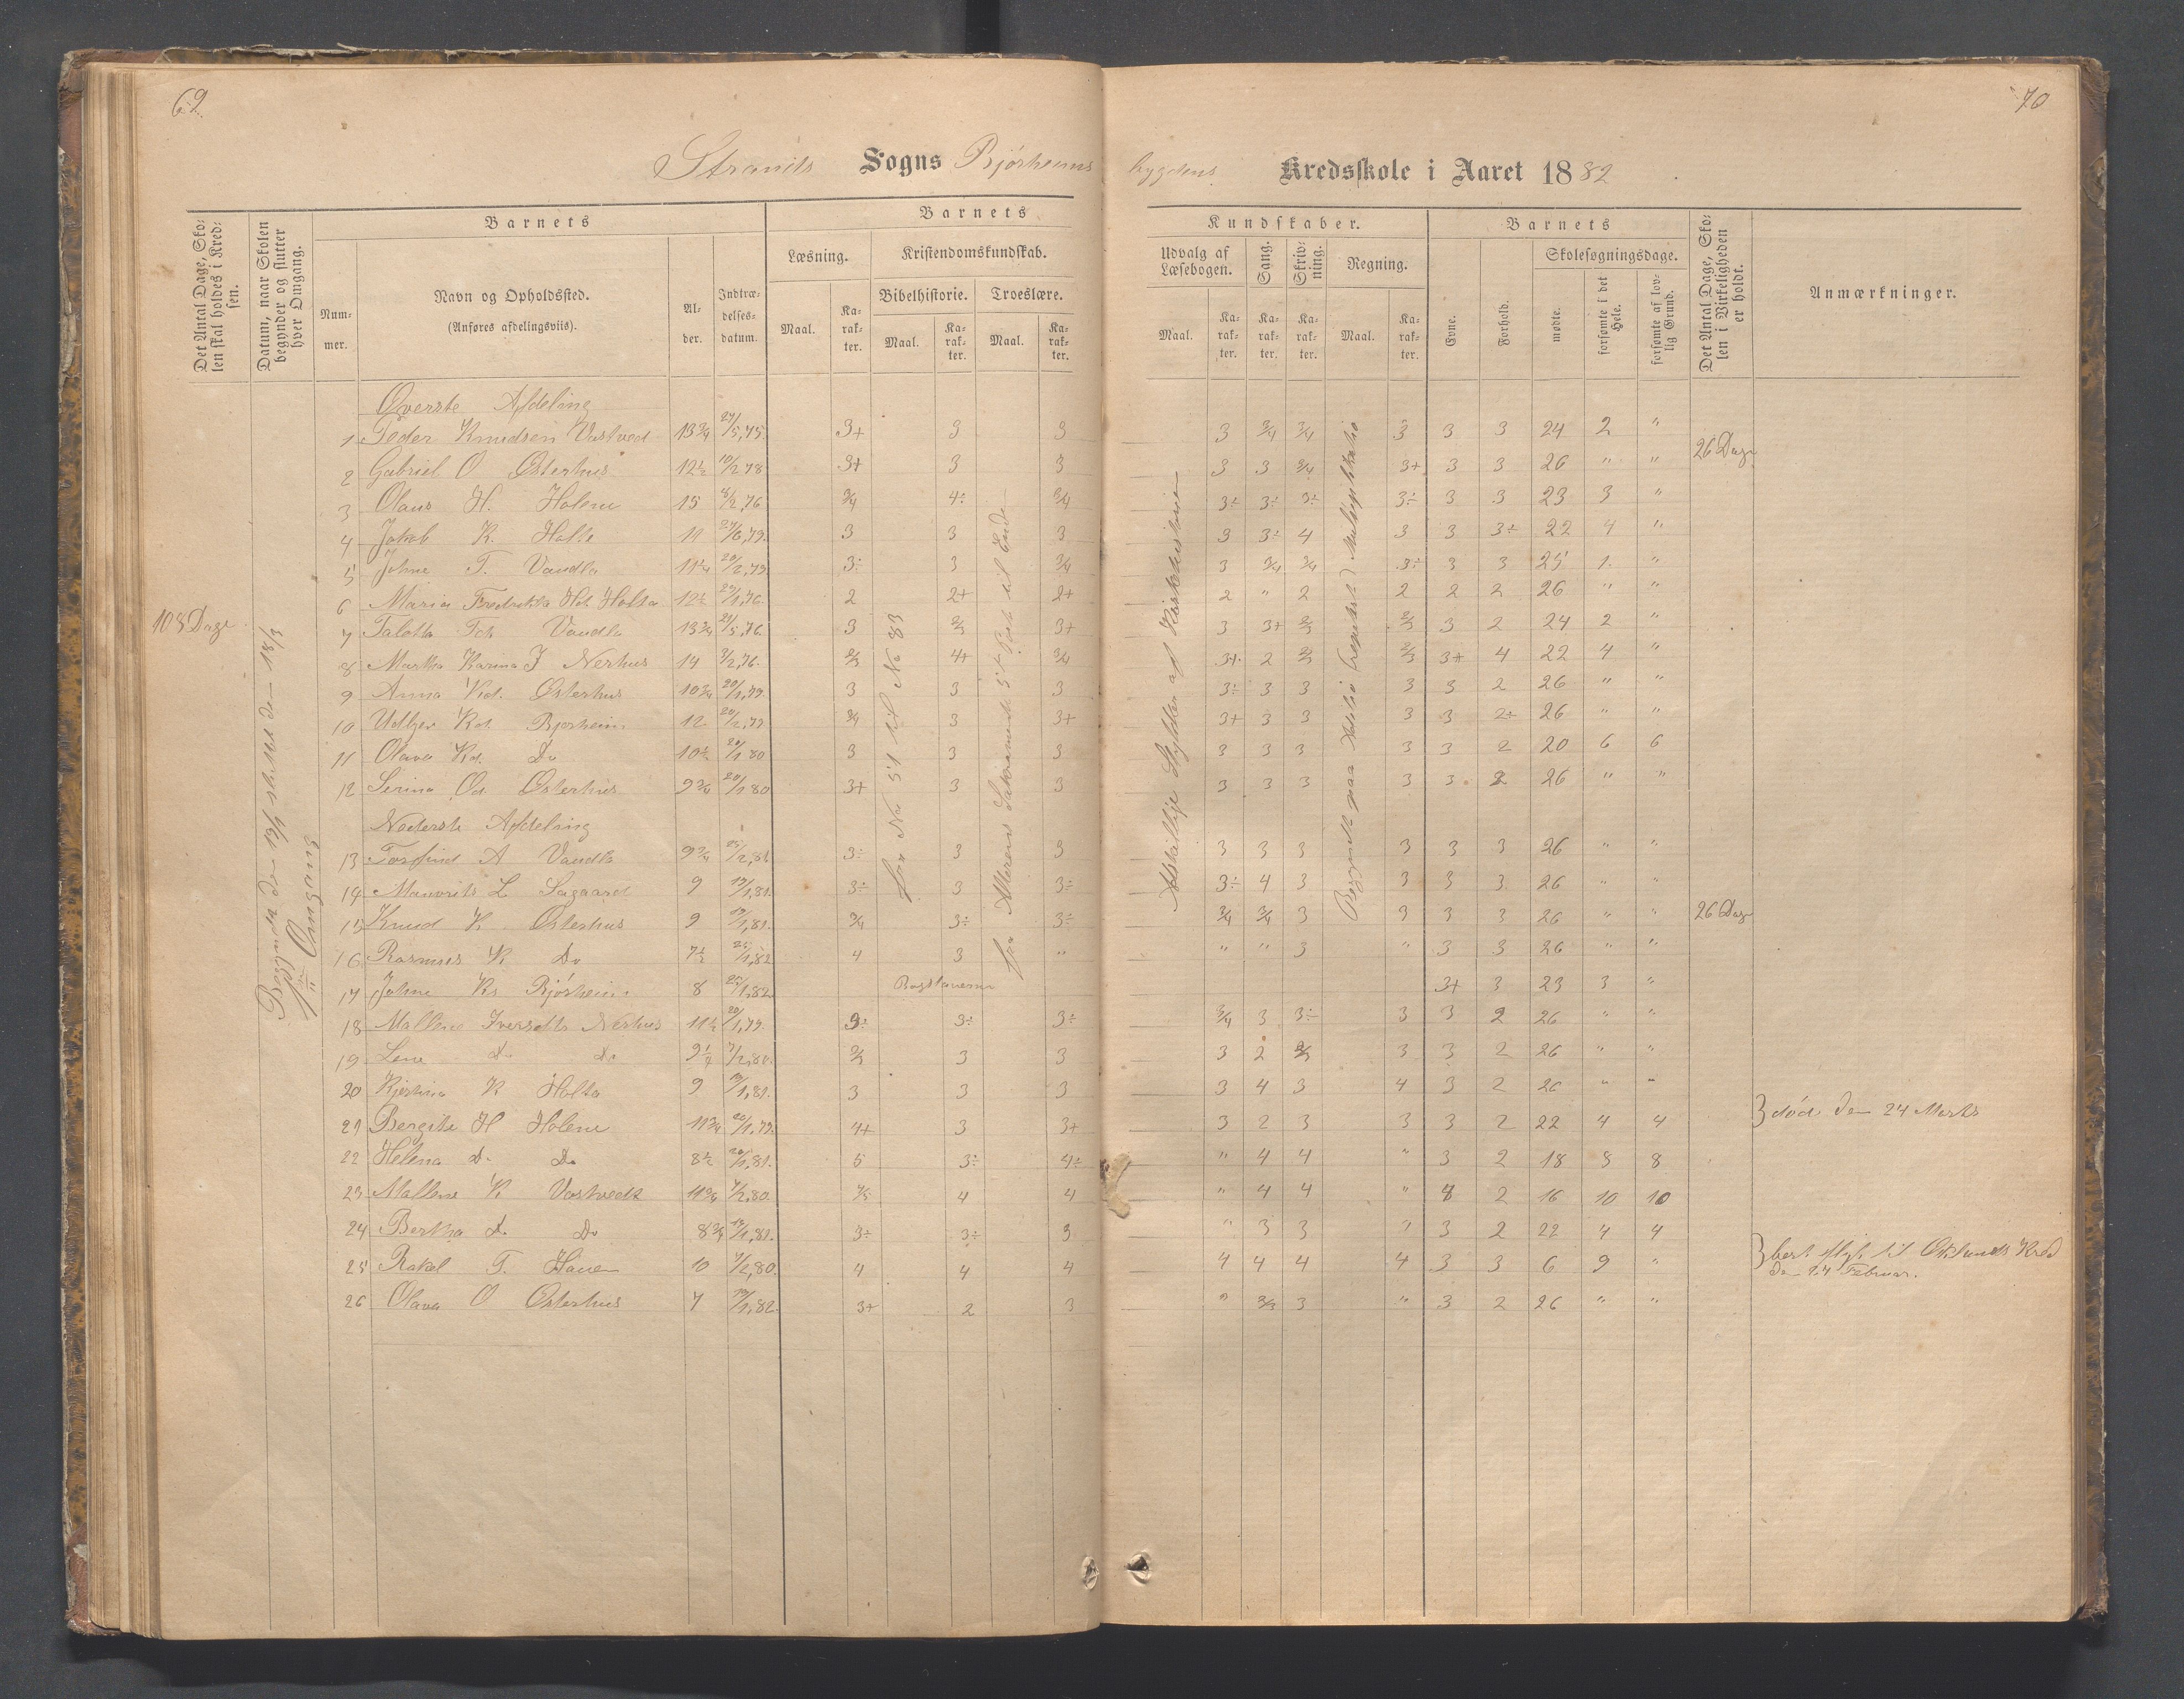 69.
70
Strands Sogns Bjørheims
bygdens Kredsskole i Aaret 1882
Det Antal Dage, Skolen skal holdes i Kredsen.
Datum, naar Skolen begynder og slutter hver Omgang.
Barnets
Nummer.
Navn og Opholdssted.
(Anføres afdelingsviis).
Alder.
Indtrædelsesdatum.
Barnets
Læsning.
Kristendomskundskab.
Bibelhistorie. Troeslære.
Maal. Karakter. Maal. Karakter. Maal. Karakter.
Kundskaber.
Udvalg af Læsebogen.
Sang.
Skrivning.
Regning.
Maal. Karakter. Karakter. Karakter. Maal. Karakter.
Barnets
Evne.
Forhold.
Skolesøgningsdage.
mødte.
forsømte i det Hele.
forsømte af lovlig Grund.
Det Antal Dage, Skolen i Virkeligheden er holdt.
Anmærkninger.
108 Dage
Omgang
Øverste Afdeling
1 Peder Knudsen Vastved 13 3/4 27/5,75 3+ 3 3 3 3/4 3/4 3 3 3 24 2 "
26 Dage
2 Gabriel O Østerhus 12 1/2 10/2 78 3+ 3 3 3 3 3/4 3+ 3 3 26 " "
3 Olaus H. Holene 15 8/2,76 3/4 4÷ 3/4 3÷ 3÷ 3÷ 3÷ 3 3 23 3 "
4 Jakob K. Holte 11 27/6,79. 3 3 3 3 3÷ 4 3 3 3÷ 22 4 "
5 Johne T. Vaudla 11 1/4 20/2,79 3÷ 3 3/4 3 3/4 3/4 3÷ 3 3 25 1. "
6 Maria Fredrikka Hd. Holta 12 1/2 29/1,76. 2 2+ 2+ 2 " 2 2 2 2 26 " "
7 Talotta Td. Vaudla 13 3/4 29/5,76 3 2/3 3+ 3 3+ 2/3 2/3 3 2 24 2 "
8 Martha Karina J Nerhus 14 3/2,76. 2/3 4+ 3/4 3+ 2 2/3 2/3 3+ 4 22 4 "
9 Anna Kd. Østerhus 10 3/4 20/1,79. 3 3 3 3÷ 3 3 3 3 2 26 " "
10 Udbjør Kd. Bjørheim 12 20/2,79 3/4 3 3+ 3+ 3 3 3 3 2÷ 26 " "
11 Olava Kd. Do 10 1/2 20/1 80 3 3 3 3 3 3 3 3 2 20 6 6
12 Serina Od. Østerhus 9 3/4 20/1 80 3+ 3 3 3 3 3 3 3 2 26 " "
Nederste Afdeling
13 Torfind A Vaudla 9 3/4 23/2,81 3÷ 3 3 3 3 3 3 3 3 26 " "
14 Mauritz L Sagaard 9 19/1,81. 3÷ 3 3÷ 3÷ 4 3 3 3 3 26 " "
15 Knud K Østerhus 9 19/1,81. 3/4 3÷ 3÷ 3/4 3/4 3 3 3 3 26 " "
26 Dage
16 Rasmus K Do 7 1/2 25/1,82 4 3 " " " 3 " 3 3 26 " "
17 Johne Ks Bjørheim 8 25/1,82 Bogstaverne 3+ 3 23 3 "
18 Mallene Iversdtr Nerhus 11 1/2 20/1,79. 3÷ 3÷ 3÷ 3/4 3 3÷ 3 3 2 26 " "
19 Lene do do 9 1/2 7/2,80. 2/3 3 3 3 2 2/3 3 3 2 26 " "
20 Kjerstina K Holta 9 19/1,81. 3 3 3 3 4 3 4 3 2 26 " "
21 Bergite H Holene 11 3/4 20/1,79. 4+ 3 3+ 3 2 3 3 3 2 22 4 4
død den 24 Marts
22 Helena Do Do 8 1/2 20/1,81. 5 3÷ 4÷ " 4 4 " 3 2 18 8 8
23 Mallene K Vastvedt 11 3/4 7/2,80. 4/5 4 4 " 4 4 " 4 2 16 10 10
24 Bertha Do Do 8 3/4 19/1,81. 3÷ 3÷ 3 " 3 3 " 3 2 22 4 4
25 Rakel T. Hauen 10 7/2,80. 4 4 4 4 4 4 4 3 3 6 9 "
bort flyt. til Kred
den 24 Februar.
26 Olava O Østerhus 7 19/1,82. 3+ 2 3 " 2/3 3 " 3 2 26 " "
fra No 51 til No 83
fra Alterens Sakramente 5te Part til Ende